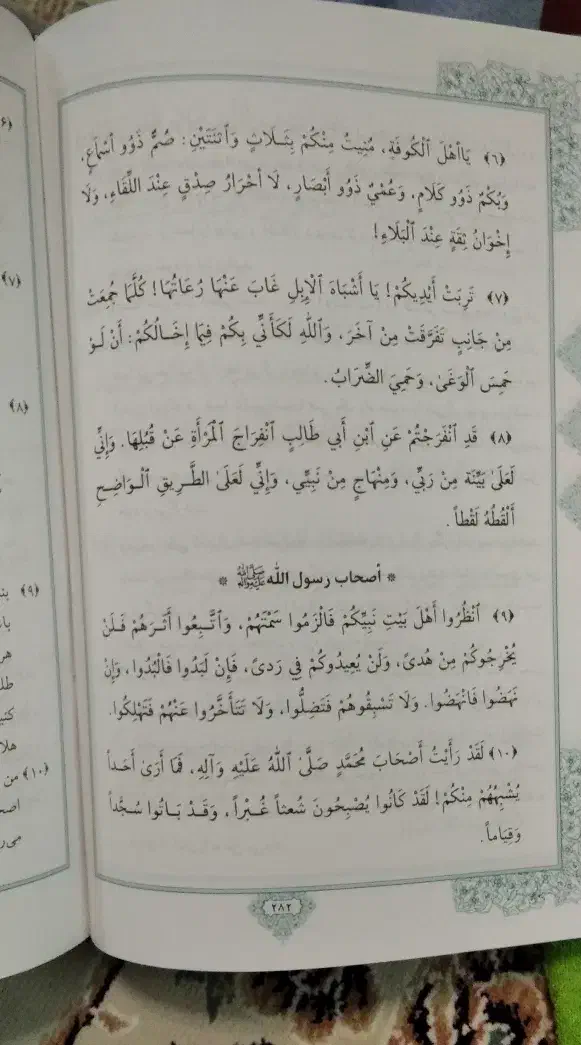 ﴿٦﴾ يَاأهْلَ ٱلْكُوفَةِ، مُنِيتُ مِنْكُمْ بِثَـلَاثٍ وَٱثْنَتَيْنِ: صُمٌّ ذَوُو أَسْمَاعٍ،
وَبُكْمٌ ذَوُو كَلَامٍ، وَعُمْيٌ ذَوُو أَبْصَارٍ، لَا أَحْرَارُ صِدْقٍ عِنْدَ اللِّقَاءِ، وَلَا
إِخْوَانُ ثِقَةٍ عِنْدَ ٱلْبَلَاءِ!
﴿٧﴾ تَرِبَتْ أَيْدِيكُمْ! يَا أَشْبَاهَ ٱلْإِبِلِ غَابَ عَنْهَا رُعَاتُهَا! كُلَّمَا جُمِعَتْ
مِنْ جَانِبٍ تَفَرَّقَتْ مِنْ آخَرَ، وَٱللهِ لَكَأَنِّي بِكُمْ فِيمَا إِخَـالُكُمْ: أَنْ لَـوْ
حَمِسَ ٱلْوَغَىٰ، وَحَمِيَ الضِّرَابُ.
﴿٨﴾ قَدِ ٱنْفَرَجْتُمْ عَنِ ٱبْنِ أَبي طَالِبٍ ٱنْفِرَاجَ ٱلْمَرْأَةِ عَنْ قُبُلِهَا. وَإِنِّي
لَعَلَىٰ بَيِّنَة مِنْ رَبِّي، وَمِنْهَاجٍ مِنْ نَبِيِّي، وَإِنِّي لَعَلَىٰ الطَّـرِيقِ ٱلْـوَاضِـحِ
أَلْقُطُهُ لَقْطاً.
* أصحاب رسول الله ﷺ *
﴿٩﴾ ٱنْظُرُوا أَهْلَ بَيْتِ نَبِيِّكُمْ فَالْزَمُوا سَمْتَهُمْ، وَٱتَّـبِعُوا أَثَـرَهُمْ فَـلَنْ
يُخْرِجُوكُمْ مِنْ هُدىً، وَلَنْ يُعِيدُوكُمْ فِي رَدىً، فَإِنْ لَبَدُوا فَالْبُدُوا، وَإِنْ
نَهَضُوا فَانْهَضُوا. وَلَا تَسْبِقُوهُمْ فَتَضِلُّوا، وَلَا تَتَأَخَّرُوا عَنْهُمْ فَتَهْلِكُوا.
﴿١٠﴾ لَقَدْ رَأَيْتُ أَصْحَابَ مُحَمَّدٍ صَلَّىٰ ٱللهُ عَلَيْهِ وَآلِهِ، فَمَا أَرَىٰ أَحَـداً
يُشْبِهُهُمْ مِنْكُمْ! لَقَدْ كَانُوا يُصْبِحُونَ شُعْثاً غُـبْراً، وَقَـدْ بَـاتُوا سُجَّداً
وَقِيَاماً.
٢٨٢
﴿٧﴾
﴿٨﴾
﴿٩﴾
﴿١٠﴾ من